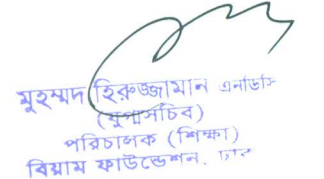 মুহম্মদ হিরুজ্জামান এনডিসি
(যুগ্মসচিব)
পরিচালক (শিক্ষা)
বিয়াম ফাউন্ডেশন,